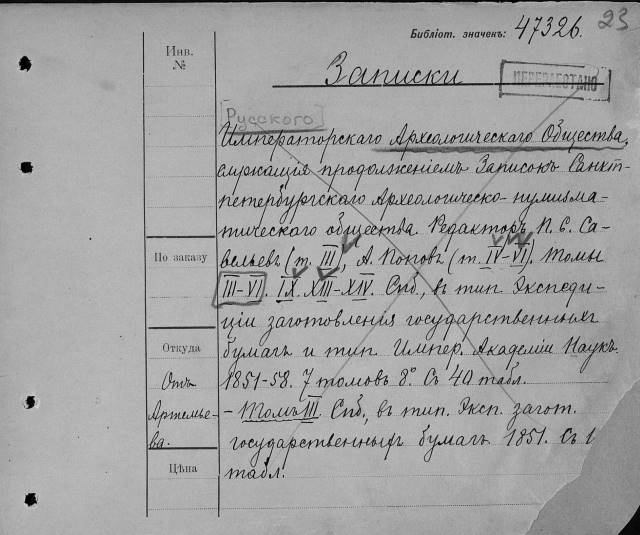 Библіот. значекъ: 47326.
23
Инв.
№
Записки
ПЕРЕРАБОТАНО
[Русского]
Императорскаго Археологическаго Общества,
служащія продолженіемъ Записокъ Санкт-
петербургскаго Археологическо-нумизма-
тическаго общества. Редакторъ П. С. Са-
вельевъ (т. III), А. Поповъ (т. IV-VI). Томы
По заказу
III-VI. IX. XIII-XIV. Спб., въ тип. Экспеди-
ціи заготовленія государственныхъ
Откуда
бумагъ и тип. Импер. Академіи Наукъ.
Отъ
1851-58. 7 томовъ 8º. Съ 40 табл.
Артемье-
- Томъ III. Спб., въ тип. Эксп. загот.
ва.
государственныхъ бумагъ 1851. Съ 1
Цѣна
табл.